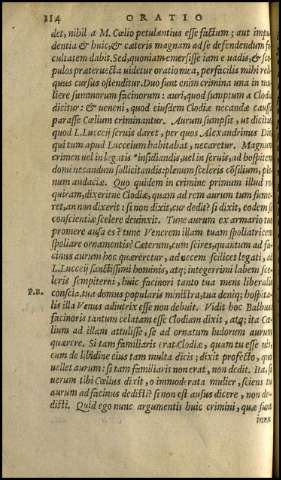 114 ORATIO
det, nihil a M. Cælio petulantius esse factum; aut impu
dentia & huic, & cæteris magnam ad se defendendum fa
cultatem dabit. Sed, quoniam emersisse iam e uadis, & sco
pulos præteruecta uidetur oratio mea, perfacilis mihi reli
quus cursus ostenditur. Duo sunt enim crimina una in mu
liere summorum facinorum: auri, quod sumptum a Clodia
dicitur: & ueneni, quod eiusdem Clodiæ necandæ causa
parasse Cælium criminantur. Aurum sumpsit, ut dicitis,
quod L. Lucceij seruis daret, per quos Alexandrinus Dio
qui tum apud Lucceium habitabat, necaretur. Magnum
crimen uel in legatis insidiandis, uel in seruis, ad hospitem
domi necandum sollicitandis: plenum sceleris cōsilium, ple
num audaciæ. Quo quidem in crimine primum illud re
quiram, dixeritne Clodiæ, quam ad rem aurum tum sume
ret, an non dixerit: si non dixit, cur dedit? si dixit, eodem se
conscientiæ scelere deuinxit. Tune aurum ex armario tuo
promere ausa es? tune Venerem illam tuam spoliatricem
spoliare ornamentis? Cæterum, cum scires, quantum ad fa
cinus aurum hoc quæreretur, ad necem scilicet legati, ad
L. Lucceij sanctissimi hominis, atq; integerrimi labem sce
leris sempiterni, huic facinori tanto tua mens liberalis
P.B. conscia, tua domus popularis ministra, tua deniq; hospita
lis illa Venus adiutrix esse non debuit. Vidit hoc Balbus
facinoris tantum celatam esse Clodiam dixit, atq; ita Cæ
lium ad illam attulisse, se ad ornatum ludorum aurum
quærere. Si tam familiaris erat Clodiæ, quam tu esse uis,
cum de libidine eius tam multa dicis; dixit profecto, quo
uellet aurum: si tam familiaris non erat, non dedit. ita, si
uerum tibi Cælius dixit, o immoderata mulier, sciens tu
aurum ad facinus dedisti: si non est ausus dicere, non de-
disti. Quid ego nunc argumentis huic crimini, quæ sunt
innu